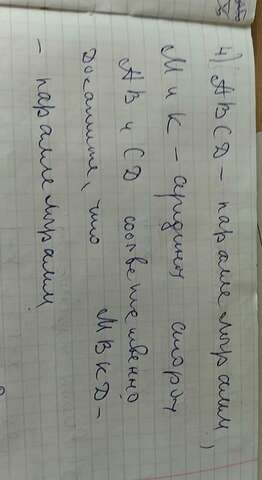 4) ABCD - параллелограмм,
М и К - середины сторон
АВ и CD соответственно
Докажите, что МВКD -
- параллелограмм